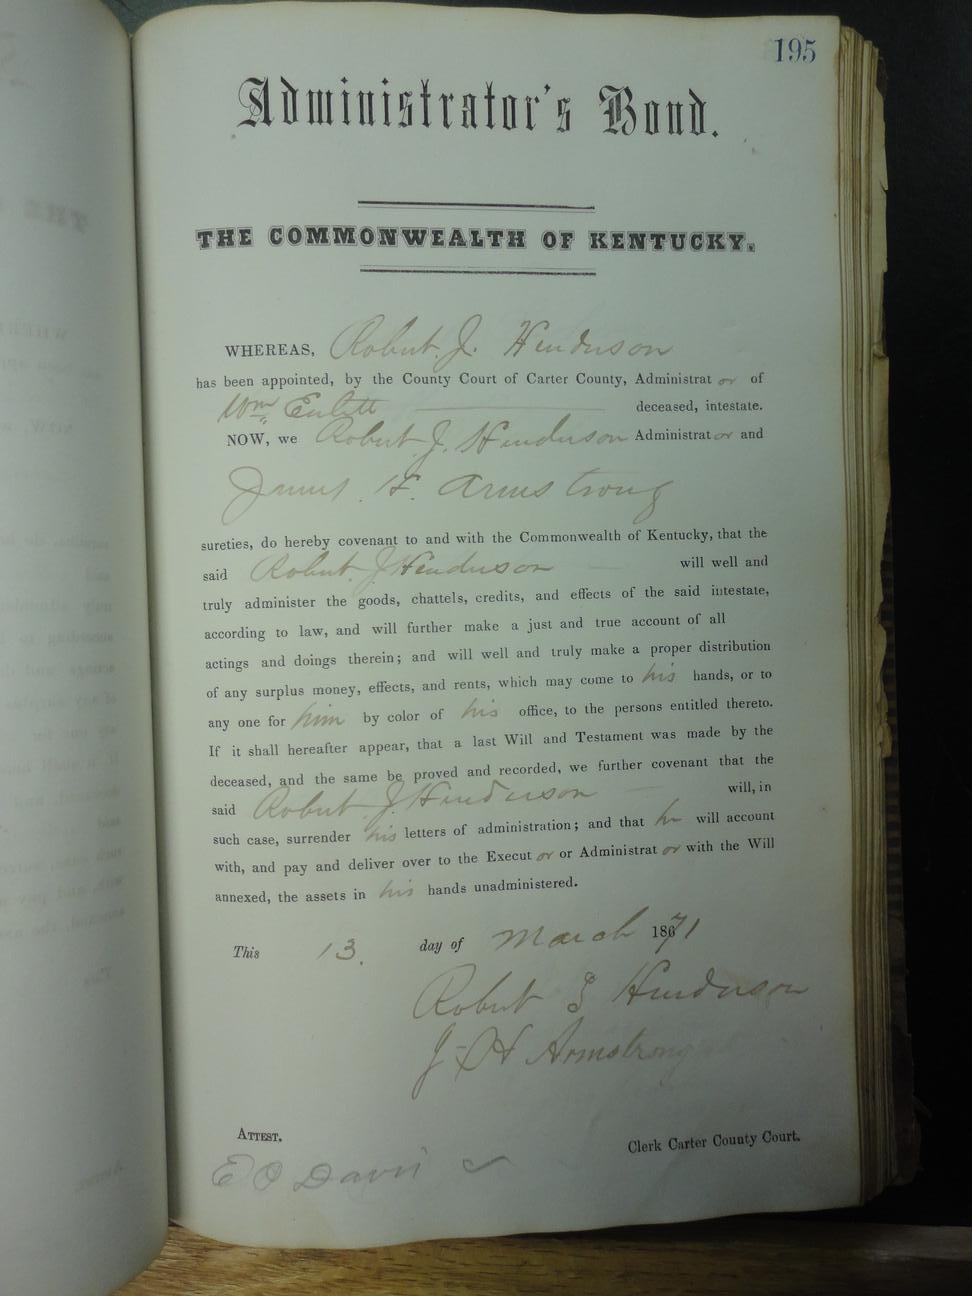 195
Administrator's Bond.
THE COMMONWEALTH OF KENTUCKY.
WHEREAS, Robert J. Henderson
has been appointed, by the County Court of Carter County, Administrator of
Wm deceased, intestate.
NOW, we Robert J. Henderson Administrator and
James H. Armstrong
sureties, do hereby covenant to and with the Commonwealth of Kentucky, that the
said Robert J Henderson will well and
truly administer the goods, chattels, credits, and effects of the said intestate,
according to law, and will further make a just and true account of all
actings and doings therein; and will well and truly make a proper distribution
of any surplus money, effects, and rents, which may come to his hands, or to
any one for him by color of his office, to the persons entitled thereto.
If it shall hereafter appear, that a last Will and Testament was made by the
deceased, and the same be proved and recorded, we further covenant that the
said Robert J Henderson will, in
such case, surrender his letters of administration; and that he will account
with, and pay and deliver over to the Executor or Administrator with the Will
annexed, the assets in his hands unadministered.
This 13. day of March 1871
Robert J Henderson
J H Armstrong
ATTEST.
Clerk Carter County Court.
E O Davis